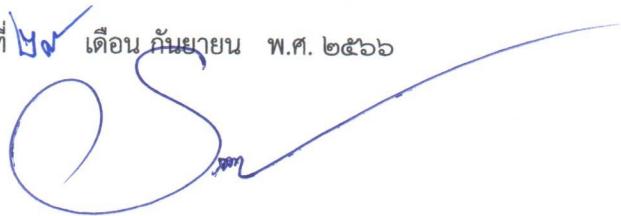 ที่ ๒๙ เดือน กันยายน พ.ศ. ๒๕๖๖